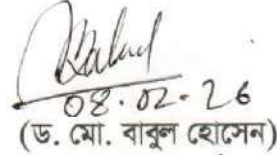 08.02.26
(ড. মো. বাবুল হোসেন)